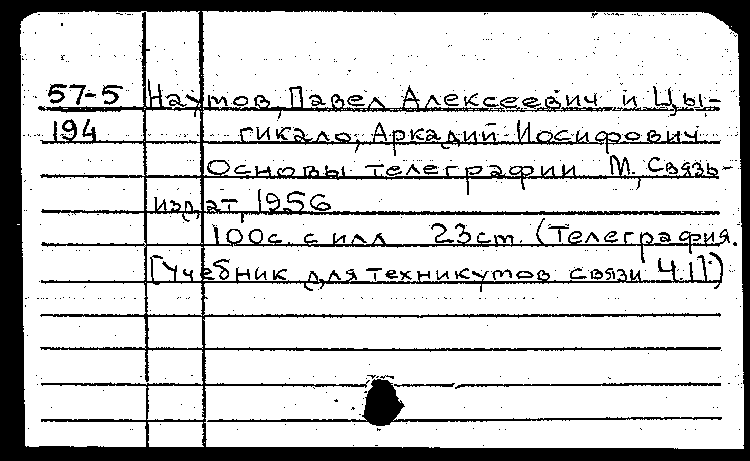 57-5 Наумов, Павел Алексеевич и Цы-
194 гикало, Аркадий Иосифович
Основы телеграфии М, Связь-
издат, 1956
100с. с илл 23ст. (Телеграфия.
[Учебник для техникутов связи Ч.1].)